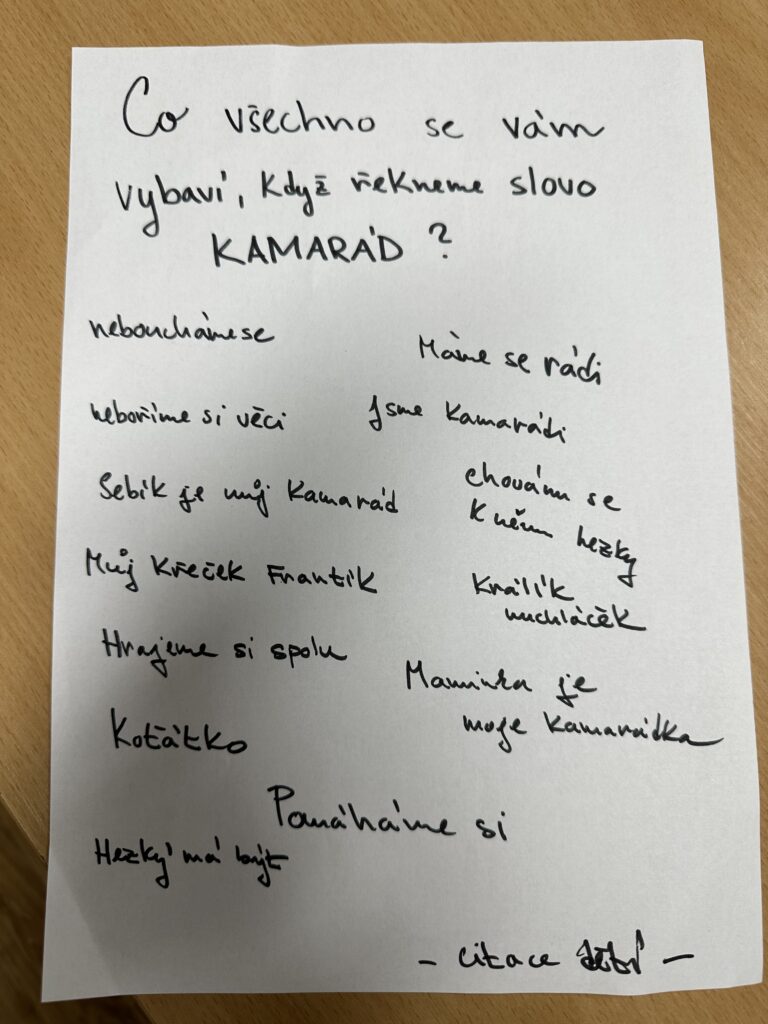 Co všechno se vám
vybaví, když řekneme slovo
KAMARÁD?
neboucháme se
Máme se rádi
neboříme si věci
Jsme kamarádi
Sebík je můj kamarád
chovám se
k něm hezky
Můj křeček Frantík
Králík
muchláček
Hrajeme si spolu
Maminka je
moje kamarádka
Koťátko
Pomáháme si
Hezký má být
- citace dětí -